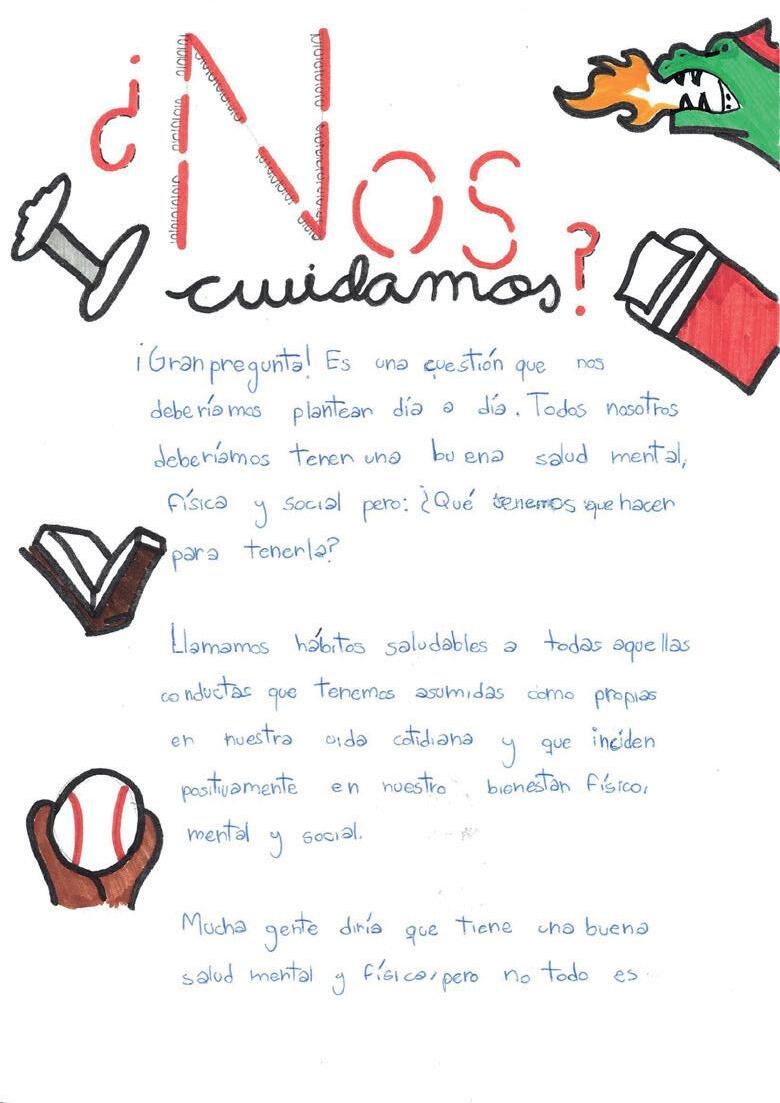 ¿Nos
cuidamos?
¡Gran pregunta! Es una cuestión que nos
deberíamos plantear día a día. Todos nosotros
deberíamos tener una buena salud mental,
física y social pero: ¿Qué tenemos que hacer
para tenerla?
Llamamos hábitos saludables a todas aquellas
conductas que tenemos asumidas como propias
en nuestra vida cotidiana y que inciden
positivamente en nuestro bienestar físico,
mental y social.
Mucha gente diría que tiene una buena
salud mental y física, pero no todo es